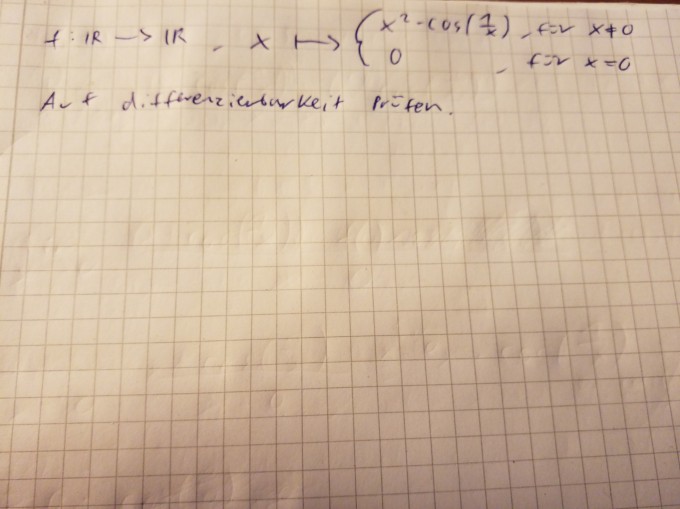 f: ℝ → ℝ, x ↦ { x² · cos(1/x), für x ≠ 0
0, für x = 0
Auf differenzierbarkeit prüfen.